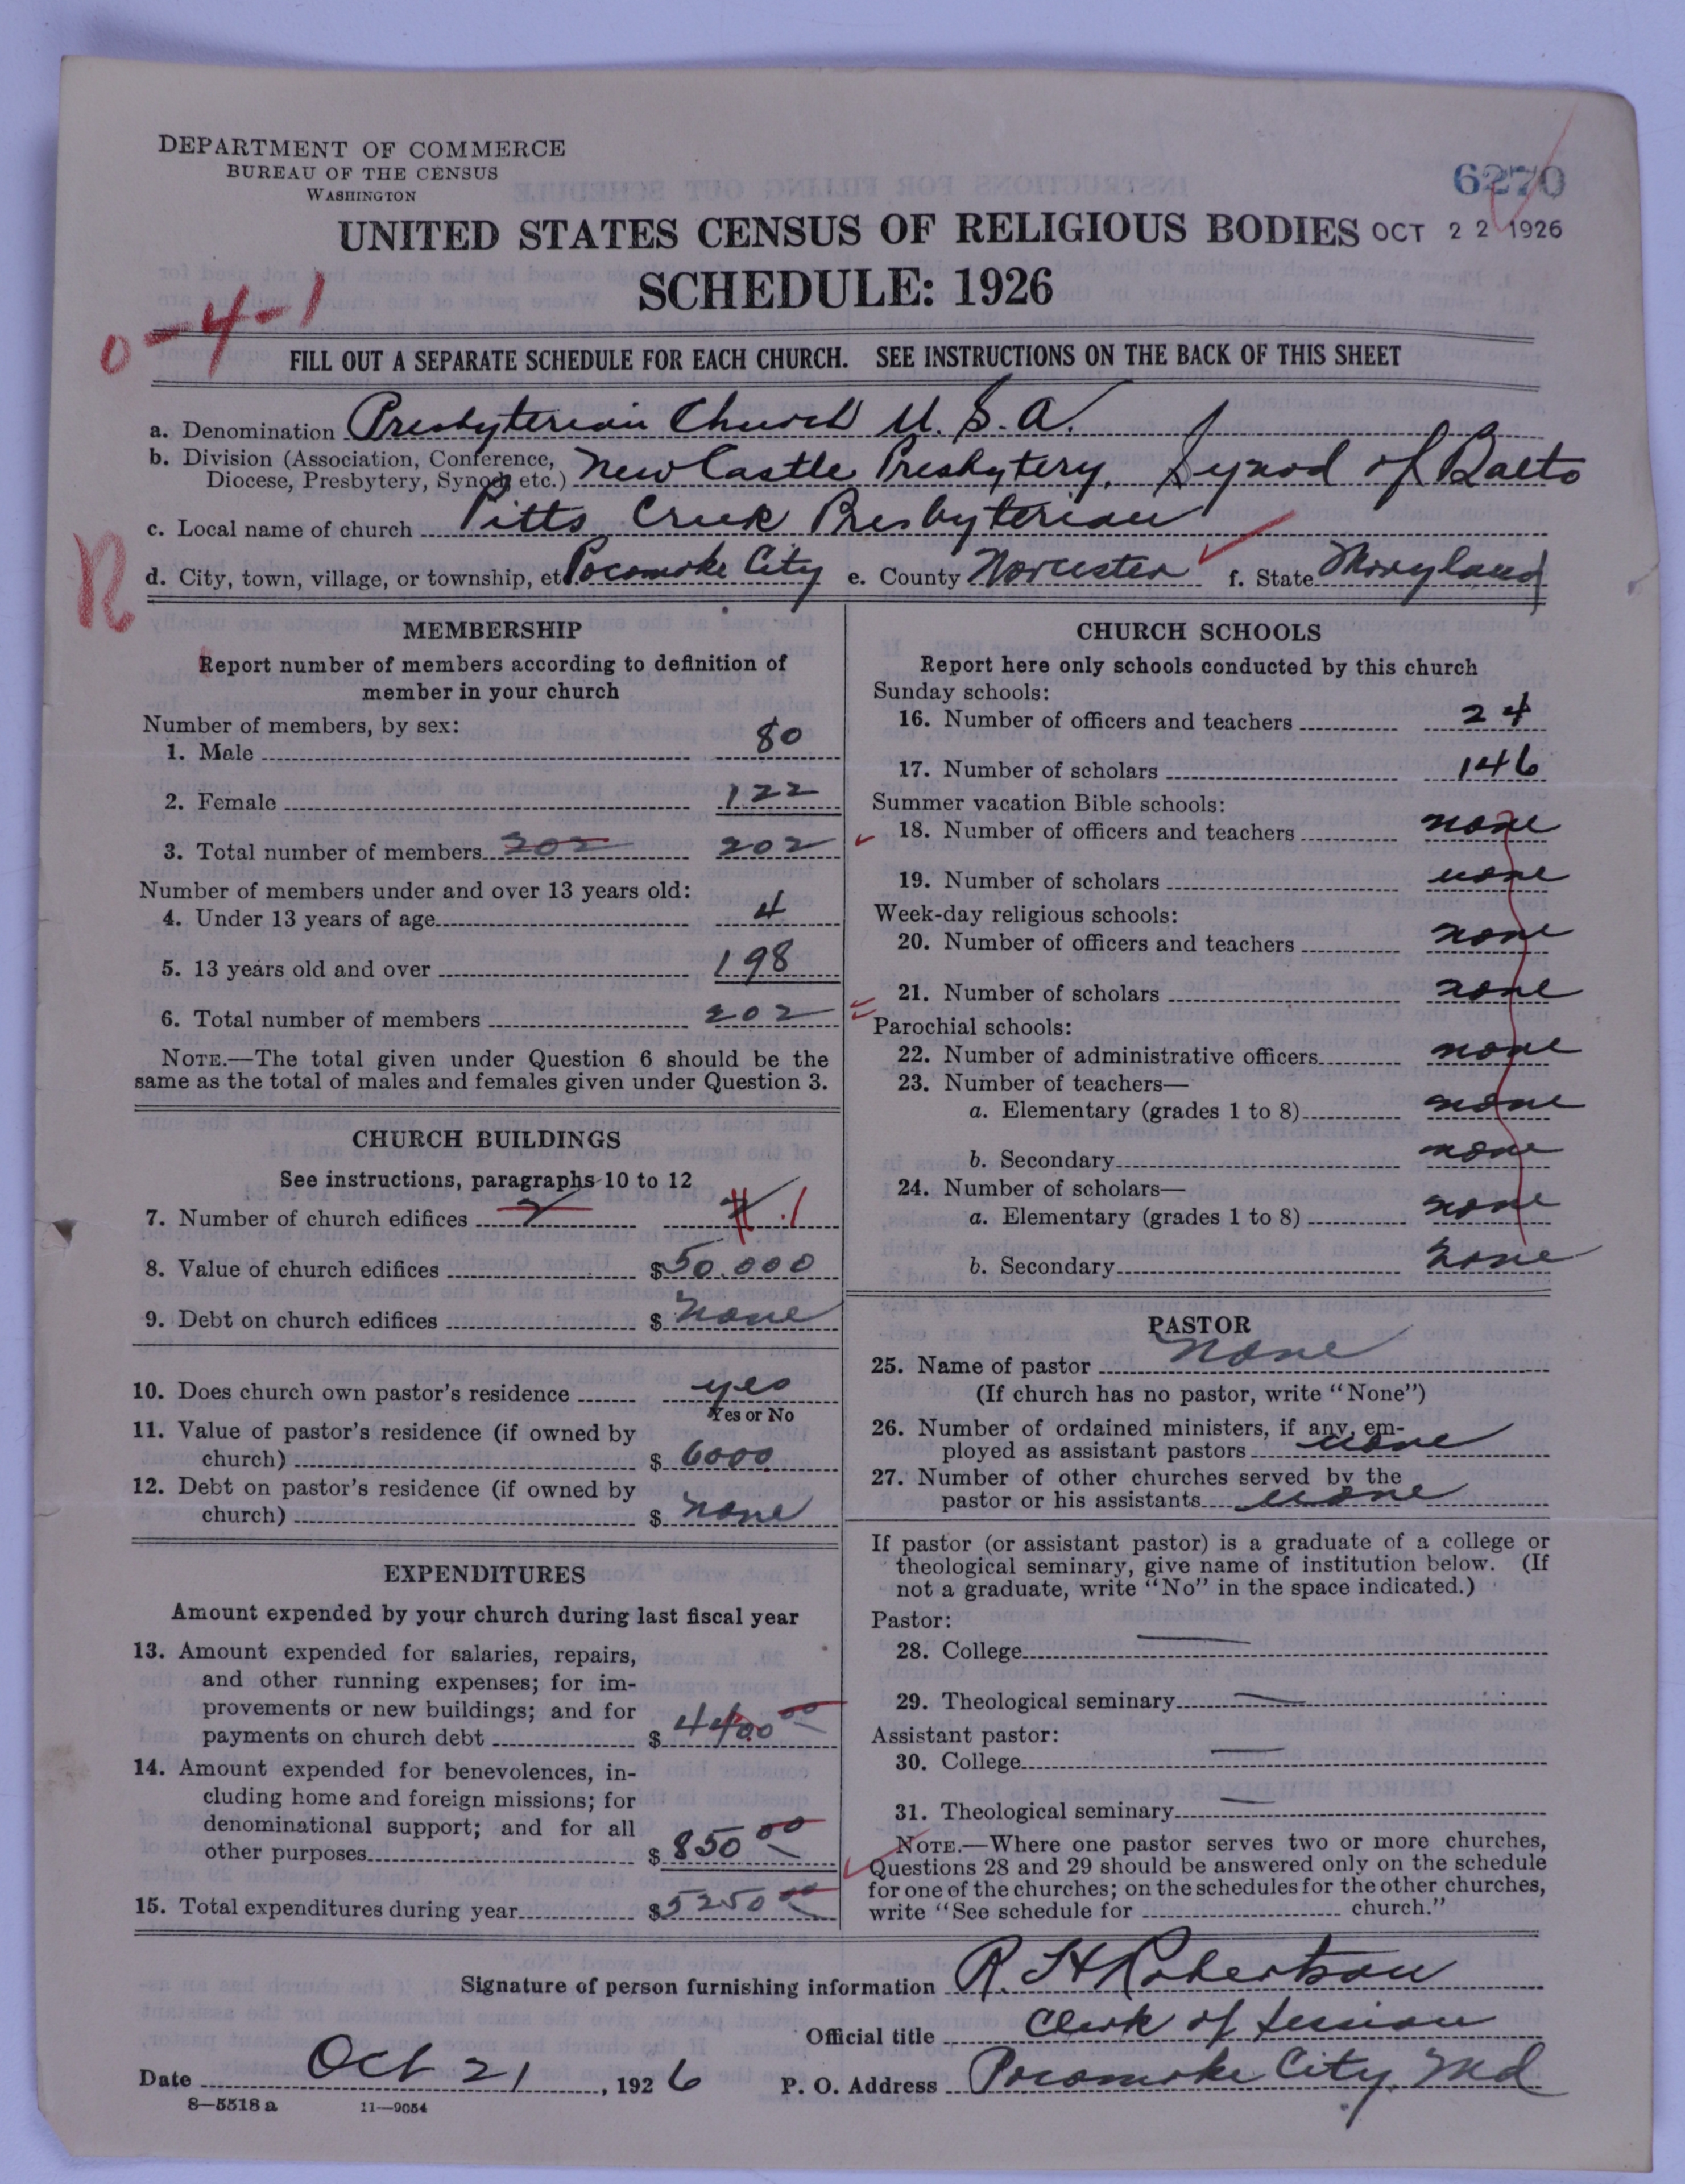 DEPARTMENT OF COMMERCE
BUREAU OF THE CENSUS
WASHINGTON
6270
UNITED STATES CENSUS OF RELIGIOUS BODIES OCT 22 1926
SCHEDULE: 1926
0-4-1
FILL OUT A SEPARATE SCHEDULE FOR EACH CHURCH. SEE INSTRUCTIONS ON THE BACK OF THIS SHEET
a. Denomination Presbyterian Church U.S.A.
b. Division (Association, Conference, Diocese, Presbytery, Synod, etc.) New Castle Presbytery, Synod of Balto
c. Local name of church Pitts Creek Presbyterian
R
d. City, town, village, or township, etc. Pocomoke City e. County Worcester f. State Maryland
MEMBERSHIP
Report number of members according to definition of
member in your church
Number of members, by sex:
1. Male 80
2. Female 122
3. Total number of members 202 202
Number of members under and over 13 years old:
4. Under 13 years of age 4
5. 13 years old and over 198
6. Total number of members 202
NOTE.—The total given under Question 6 should be the
same as the total of males and females given under Question 3.
CHURCH BUILDINGS
See instructions, paragraphs 10 to 12
7. Number of church edifices 2 2 1
8. Value of church edifices $50.000
9. Debt on church edifices $ none
10. Does church own pastor's residence yes
Yes or No
11. Value of pastor's residence (if owned by
church) $ 6000
12. Debt on pastor's residence (if owned by
church) $ none
EXPENDITURES
Amount expended by your church during last fiscal year
13. Amount expended for salaries, repairs,
and other running expenses; for im-
provements or new buildings; and for
payments on church debt $ 4400 00
14. Amount expended for benevolences, in-
cluding home and foreign missions; for
denominational support; and for all
other purposes $ 850 00
15. Total expenditures during year $5250 00
CHURCH SCHOOLS
Report here only schools conducted by this church
Sunday schools:
16. Number of officers and teachers 24
17. Number of scholars 146
Summer vacation Bible schools:
18. Number of officers and teachers none
19. Number of scholars none
Week-day religious schools:
20. Number of officers and teachers none
21. Number of scholars none
Parochial schools:
22. Number of administrative officers none
23. Number of teachers—
a. Elementary (grades 1 to 8) none
b. Secondary none
24. Number of scholars—
a. Elementary (grades 1 to 8) none
b. Secondary none
PASTOR
25. Name of pastor None
(If church has no pastor, write "None")
26. Number of ordained ministers, if any, em-
ployed as assistant pastors none
27. Number of other churches served by the
pastor or his assistants none
If pastor (or assistant pastor) is a graduate of a college or
theological seminary, give name of institution below. (If
not a graduate, write "No" in the space indicated.)
Pastor:
28. College —
29. Theological seminary —
Assistant pastor:
30. College —
31. Theological seminary —
NOTE.—Where one pastor serves two or more churches,
Questions 28 and 29 should be answered only on the schedule
for one of the churches; on the schedules for the other churches,
write "See schedule for church."
Signature of person furnishing information R. H. Robertson
Official title Clerk of Session
Date Oct 21, 1926 P. O. Address Pocomoke City, Md
8—5518 a 11—9054